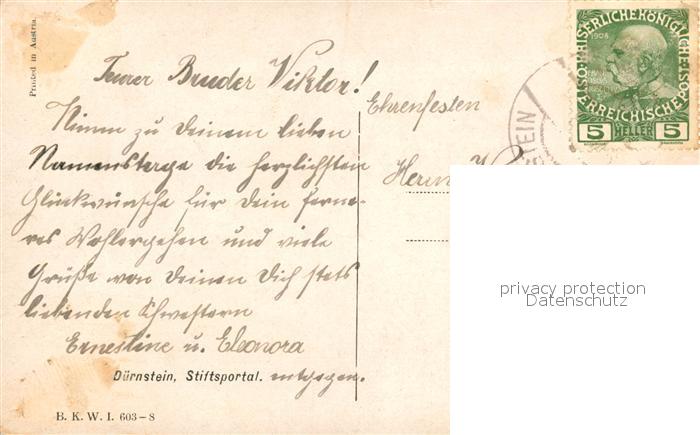 Printed in Austria
Teurer Bruder Viktor!
Nimm zu Deinem lieben
Namenstage die herzlichsten
Glückwünsche für Dein ferne-
res Wohlergehen und viele
Grüße von Deinen Dich stets
liebenden Schwestern
Ernestine u. Eleonora
Dürnstein, Stiftsportal. entgegen.
B. K. W. I. 603-8
Ehrenfesten
Herrn
KAISERLICHE KÖNIGLICHE
ÖSTERREICHISCHE
1908
5 HELLER 5
privacy protection
Datenschutz